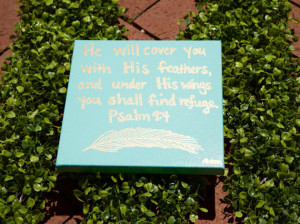 He will cover you
with His feathers,
and under His wings
you shall find refuge.
Psalm 9:4